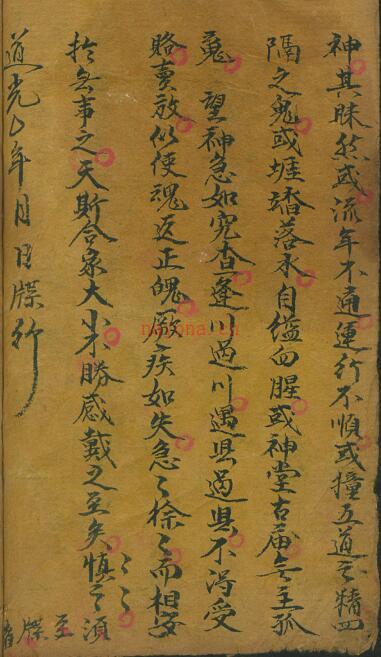 神其昧然或流年不通運行不順或撞五道之精四
隔之鬼或堐踏落水自缢血腥或神堂古庙無主孤
䰟望神急如究查逢川過川遇县過县不淂受
賂賣放似使魂返正魄厥疾如失急々徐々而相安
於無事之天斯合家大小不勝感戴之至矣慎之須
至牒者
道光 年 月 日牒行